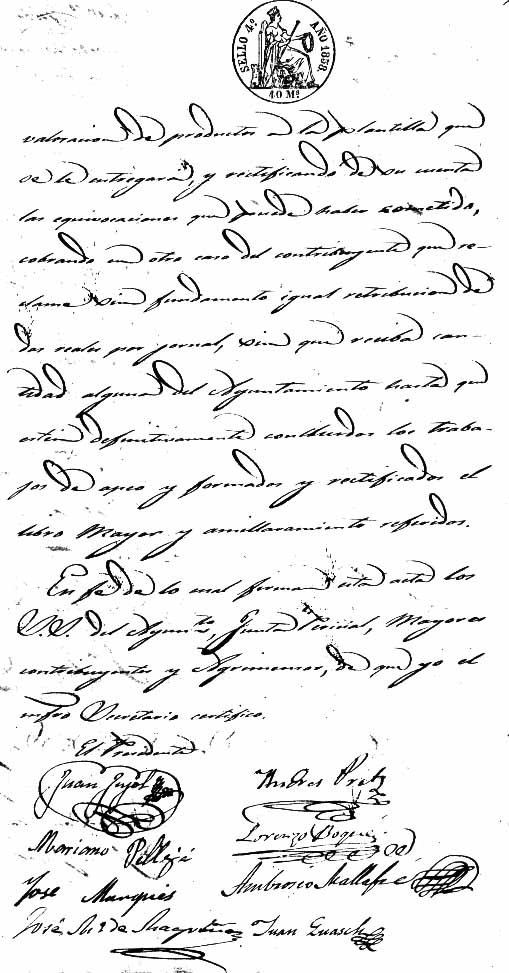 SELLO 4º AÑO 1858.
40 Mˢ
valoracion de productos en la plantilla que
se le entregará, y rectificando de su cuenta
las equivocaciones que puede haber cometido,
cobrando en otro caso del contribuyente que re-
clame sin fundamento igual retribucion de
dos reales por jornal, sin que reciba can-
tidad alguna del Ayuntamiento hasta que
esten definitivamente concluidos los traba-
jos de apeo y formados y rectificados el
libro Mayor y amillaramiento referidos.
En fé de lo cual firman esta acta los
S.S. del Ayunᵗᵒ, Junta Pericial, Mayores
contribuyentes y Agrimensor, de que yo el
infro Secretario certifico.
El Presidente
Juan Pujol Andres Prats
Mariano Pallejá Lorenzo
José Marqués Ambrosio Mallafré
José Mª de Juan Guasch